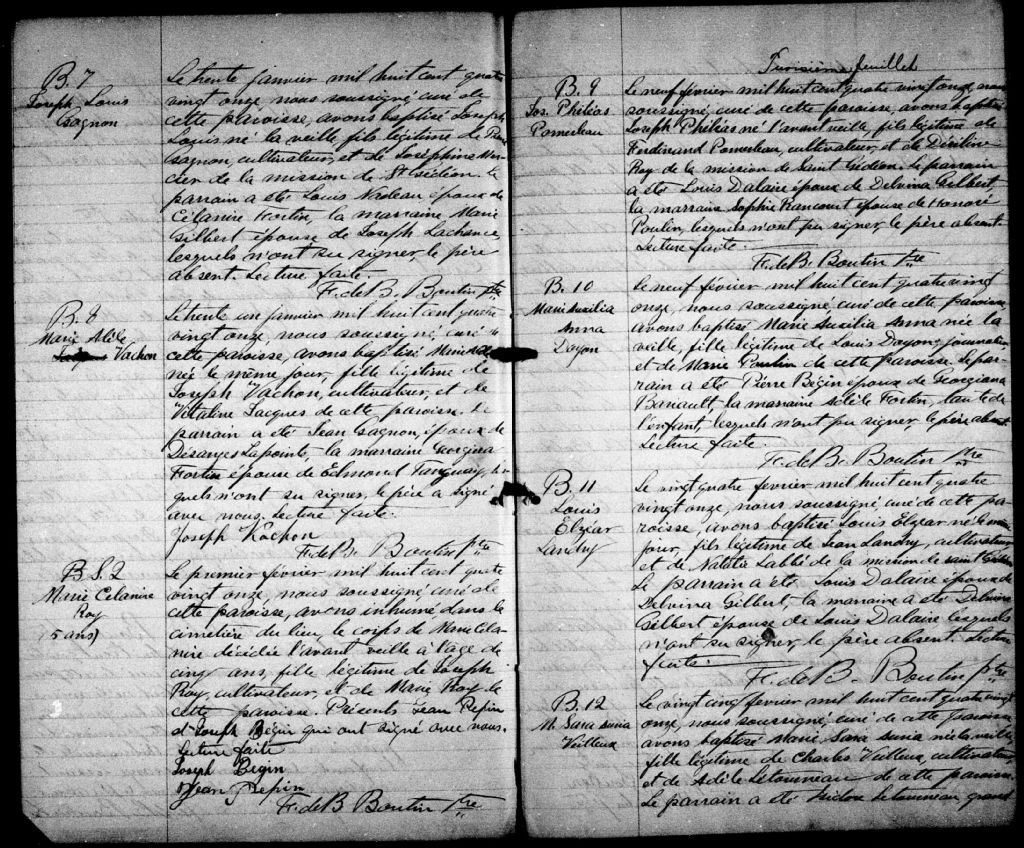 B. 7
Joseph Louis
Gagnon
Le trente janvier mil huit cent quatre
vingt onze, nous soussigné curé de
cette paroisse, avons baptisé Joseph
Louis né la veille, fils légitime de
Gagnon, cultivateur, et de Joséphine Mer-
cier de la mission de St Gédéon. Le
parrain a été Louis Nadeau époux de
Célanire Fortin, la marraine Marie
Gilbert épouse de Joseph Lachance,
lesquels n'ont su signer, le père
absent. Lecture faite.
F. de B. Boutin ptre
B. 8
Marie Adèle
Vachon
Le trente un janvier mil huit cent quatre
vingt onze, nous soussigné, curé de
cette paroisse, avons baptisé Marie Adèle
née le même jour, fille légitime de
Joseph Vachon, cultivateur, et de
Vitaline Jacques de cette paroisse. Le
parrain a été Jean Gagnon, époux de
Désanges Lapointe, la marraine Georgina
Fortin épouse de Edmond Tanguay, les-
quels n'ont su signer, le père a signé
avec nous. Lecture faite.
Joseph Vachon
F. de B. Boutin ptre
B S. 2
Marie Célanire
Roy
5 ans)
Le premier février mil huit cent quatre
vingt onze, nous soussigné curé de
cette paroisse, avons inhumé dans le
cimetière du lieu, le corps de Marie Céla-
nire décédée l'avant veille à l'age de
cinq ans, fille légitime de Joseph
Roy, cultivateur, et de Marie Roy de
cette paroisse. Présents Jean Pépin
et Joseph Bégin qui ont signé avec nous.
Lecture faite
Joseph Begin
Jean Pepin
F. de B Boutin ptre
Troisième feuillet
B. 9
Jos. Philias
Pomerleau
Le neuf février mil huit cent quatre vingt onze, nous
soussigné, curé de cette paroisse, avons baptisé
Joseph Philias né l'avant veille, fils légitime de
Ferdinand Pomerleau, cultivateur, et de
Roy de la mission de Saint Gédéon. Le parrain
a été Louis Dalaire époux de Delvina Gilbert,
la marraine Sophie Rancourt épouse de Honoré
Poulin, lesquels n'ont pu signer, le père absent.
Lecture faite.
F. de B. Boutin ptre
B. 10
Marie Auxilia
Anna
Doyon
Le neuf février mil huit cent quatre vingt
onze, nous soussigné, curé de cette paroisse
avons baptisé Marie Auxilia Anna née la
veille, fille légitime de Louis Doyon, journalier
et de Marie Poulin de cette paroisse. Le par-
rain a été Pierre Bégin époux de Georgiana
la marraine Adèle Fortin, tante de
l'enfant, lesquels n'ont pu signer le père absent.
Lecture faite.
F. de B. Boutin ptre
B. 11
Louis
Elzéar
Landry
Le vingt quatre fevrier mil huit cent quatre
vingt onze, nous soussigné, curé de cette pa-
roisse, avons baptisé Louis Elzear né le même
jour, fils légitime de Jean Landry, cultivateur
et de Natalie Labbé de la mission de saint Gédéon
Le parrain a été Louis Dalaire époux de
Delvina Gilbert, la marraine a été Delvina
Gilbert épouse de Louis Dalaire lesquels
n'ont su signer, le père absent. Lecture
faite.
F. de B. Boutin ptre
B. 12
M. Sara
Veilleux
Le vingt cinq février mil huit cent quatre vingt
onze, nous soussigné, curé de cette paroisse
avons baptisé Marie Sara née la veille,
fille légitime de Charles Veilleux, cultivateur
et de Adèle Létourneau de cette paroisse.
Le parrain a été Isidore Letourneau, grand